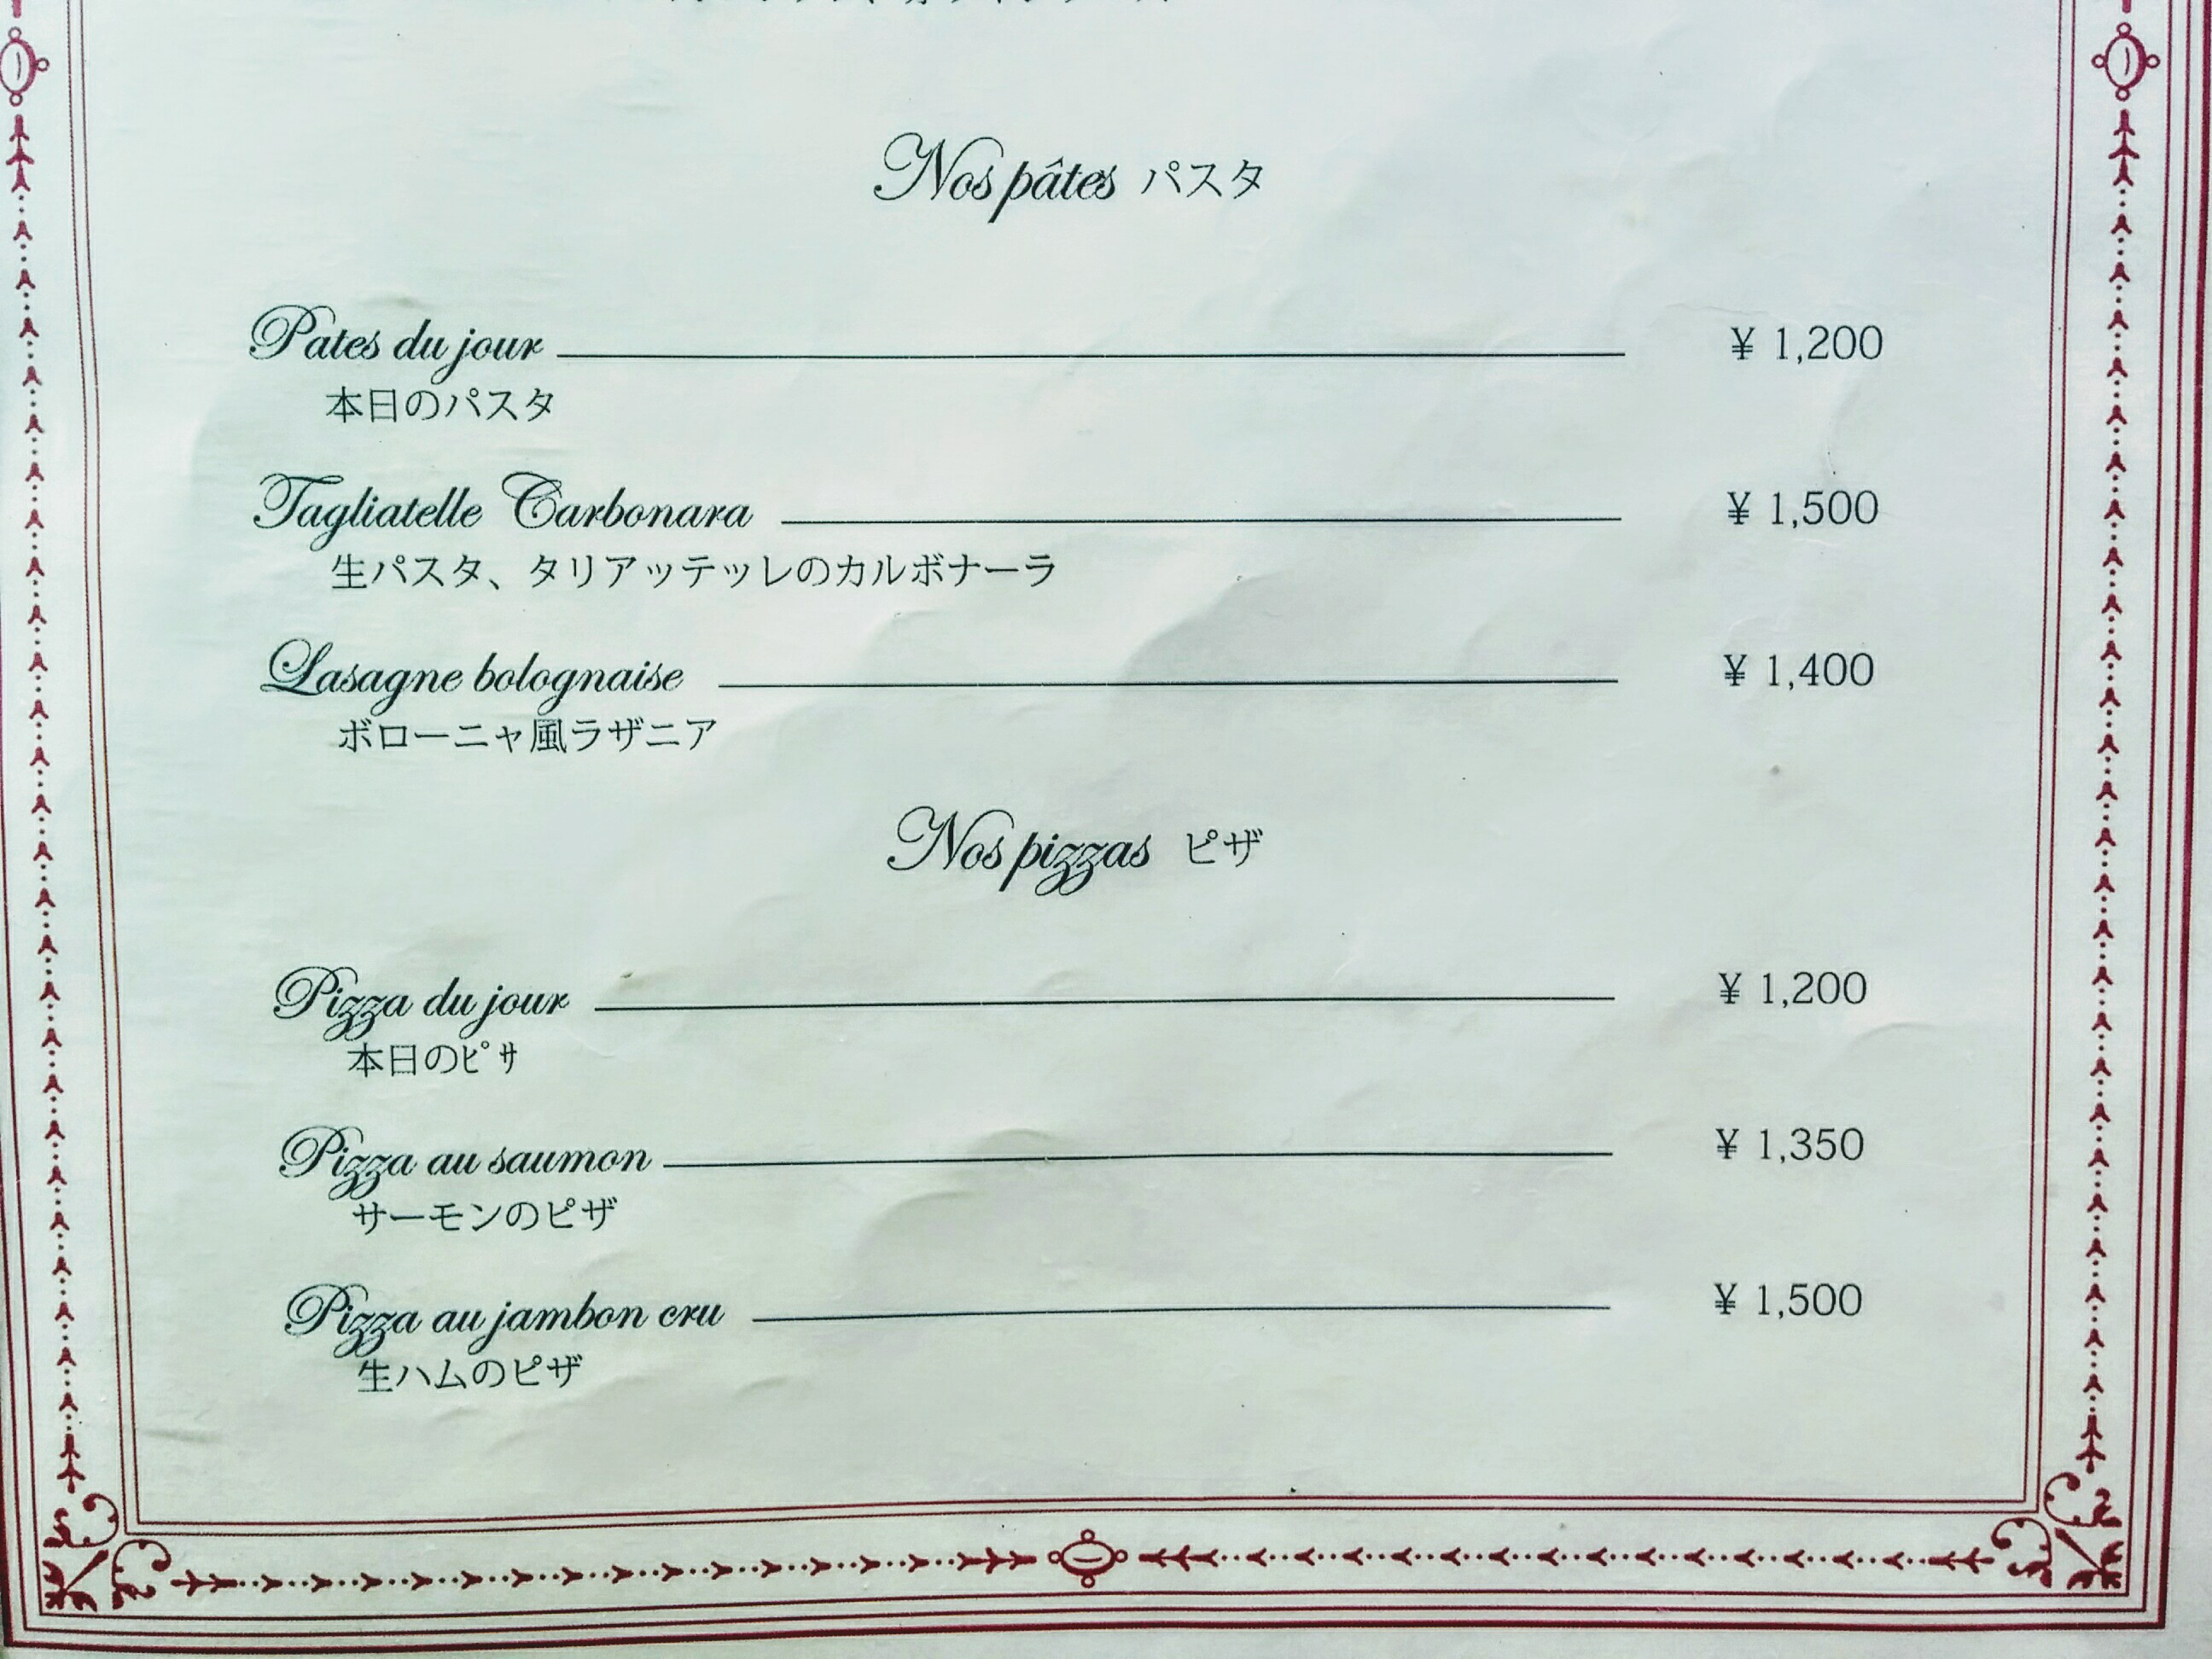 Nos pâtes パスタ
Pates du jour ¥ 1,200
本日のパスタ
Tagliatelle Carbonara ¥ 1,500
生パスタ、タリアッテッレのカルボナーラ
Lasagne bolognaise ¥ 1,400
ボローニャ風ラザニア
Nos pizzas ピザ
Pizza du jour ¥ 1,200
本日のﾋﾟｻ
Pizza au saumon ¥ 1,350
サーモンのピザ
Pizza au jambon cru ¥ 1,500
生ハムのピザ